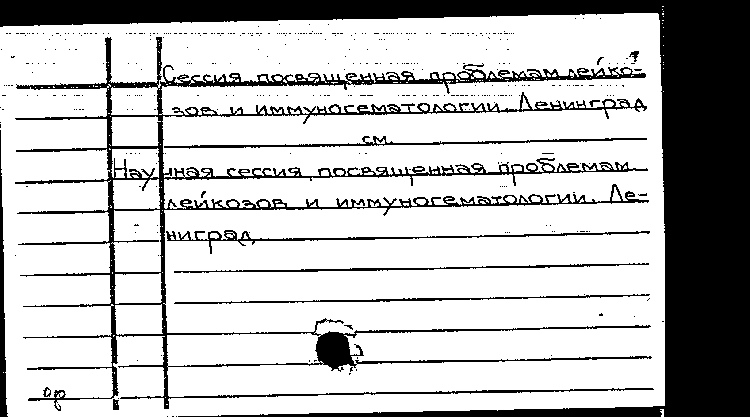 Сессия посвященная проблемам лейко-
зов и иммуногематологии. Ленинград
см.
Научная сессия, посвященная проблемам
лейкозов и иммуногематологии. Ле-
ниград.